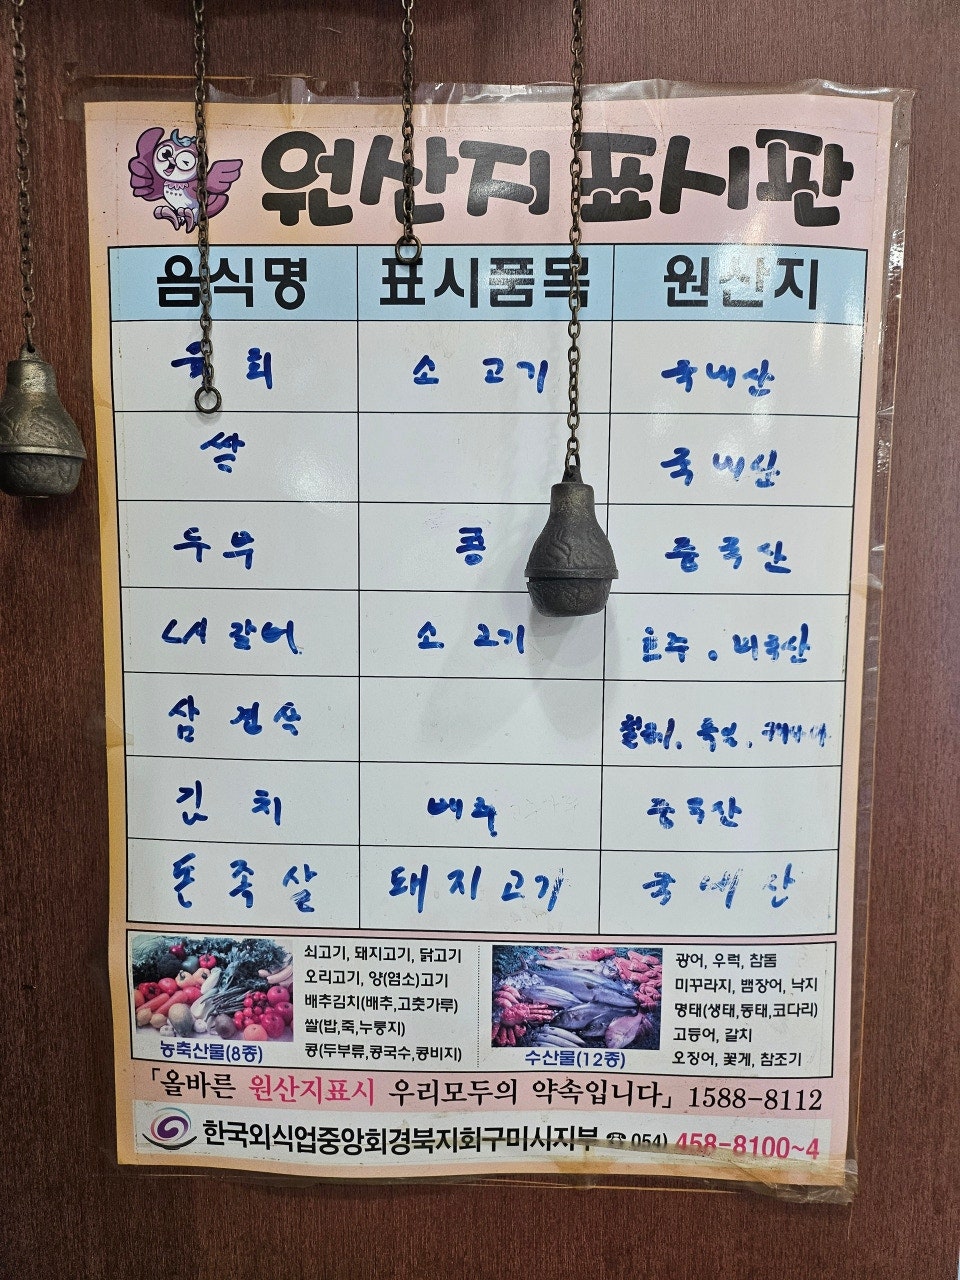 원산지 표시판
음식명 표시품목 원산지
육회 소고기 국내산
쌀 국내산
두부 콩 중국산
LA갈비 소고기 호주. 미국산
삼겹살 칠레.
김치 배추 중국산
돈족살 돼지고기 국내산
쇠고기, 돼지고기, 닭고기
오리고기, 양(염소)고기
배추김치(배추,고춧가루)
쌀(밥,죽,누룽지)
콩(두부류,콩국수,콩비지)
농축산물(8종)
광어, 우럭, 참돔
미꾸라지, 뱀장어, 낙지
명태(생태,동태,코다리)
고등어, 갈치
오징어, 꽃게, 참조기
수산물(12종)
「올바른 원산지표시 우리모두의 약속입니다」 1588-8112
한국외식업중앙회경북지회구미시지부 ☎ 054) 458-8100~4